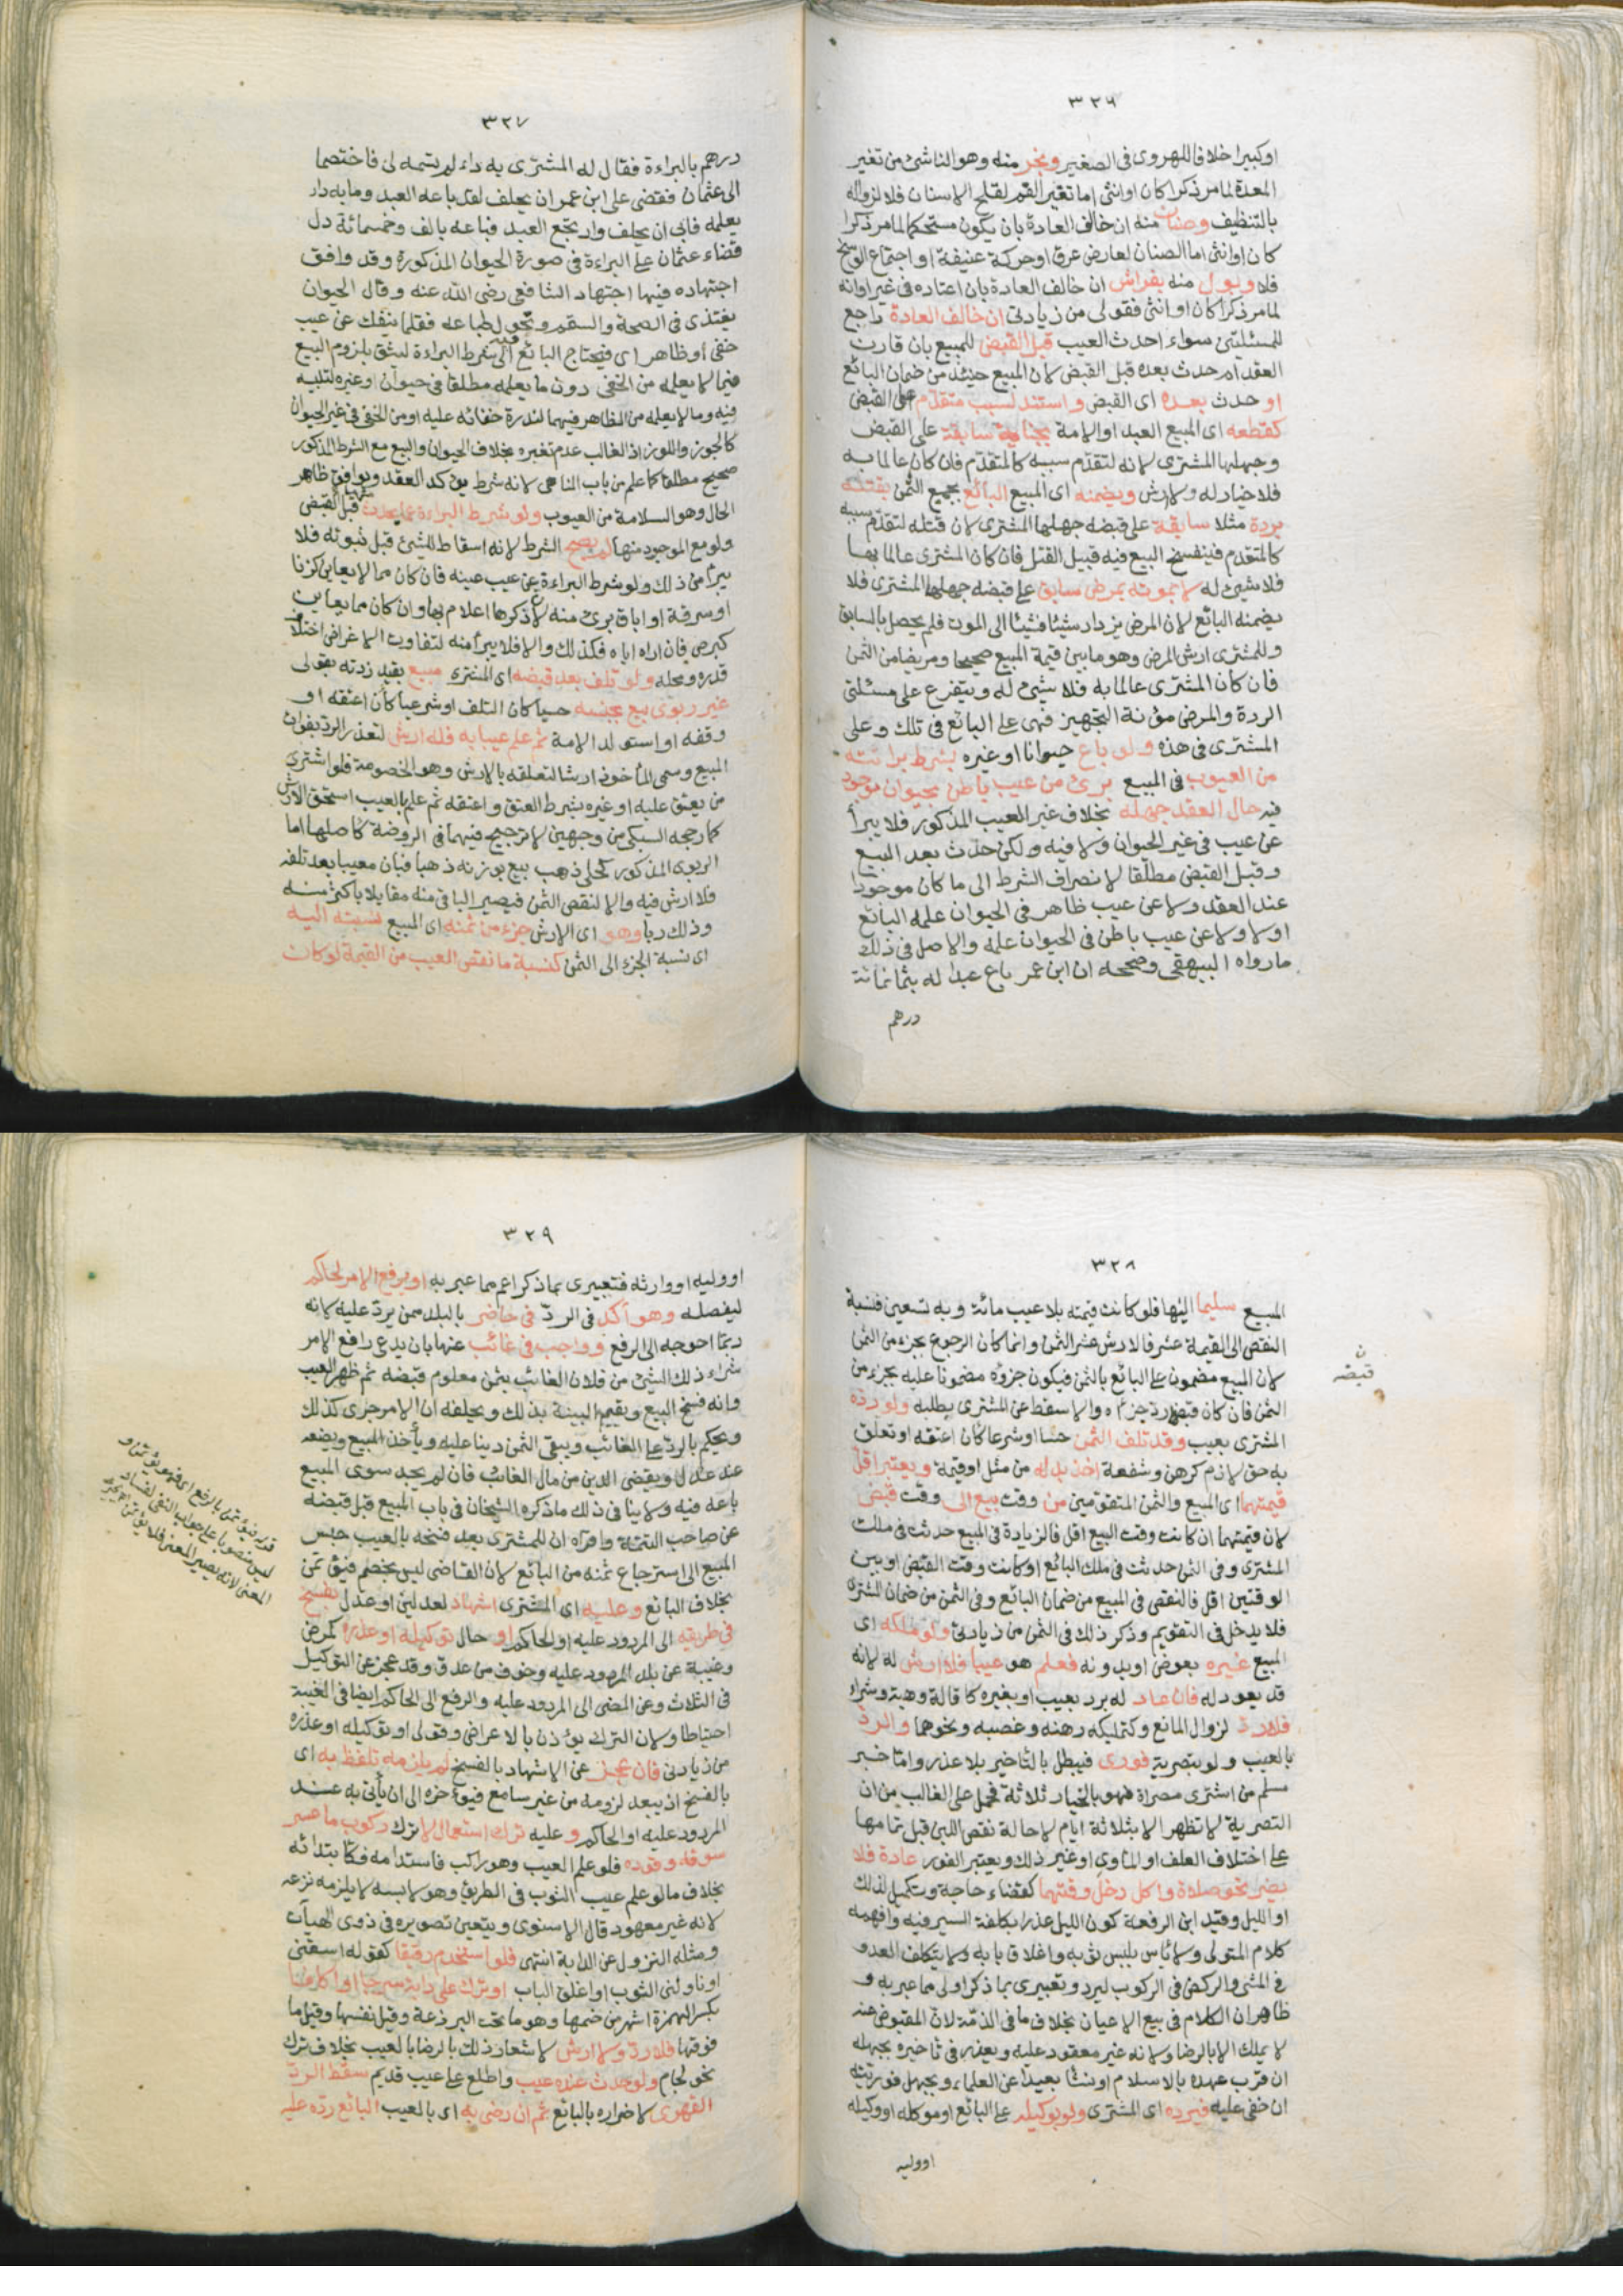 ٣٢٦
او كبيرا خلافا للهروى فى الصغير وبخر منه وهو الناشئ من تغير
المعدة لما مر ذكرا كان او انثى اما تغير الفم لقلح الاسنان فلا لزواله
بالتنظيف وصنان منه ان خالف العادة بان يكون مستحكما لما مر ذكرا
كان او انثى اما الصنان لعارض عرق او حركة عنيفة او اجتماع الوسخ
فلا وبول منه بفراش ان خالف العادة بان اعتاده فى غير اوانه
لما مر ذكرا كان او انثى فقولى من زيادتى ان خالف العادة راجع
للمسئلتين سواء احدث العيب قبل القبض للمبيع بان قارن
العقد ام حدث بعده قبل القبض لان المبيع حينئذ من ضمان البائع
او حدث بعده اى القبض واستند لسبب متقدم على القبض
كقطعه اى المبيع العبد او الامة بجناية سابقة على القبض
وجهلها المشترى لانه لتقدم سببه كالمتقدم فان كان عالما به
فلا خيار له ولا ارش ويضمنه اى المبيع البائع بجميع الثمن بقتله
بردة مثلا سابقة على قبضه جهلها المشترى لان قتله لتقدم سببه
كالمتقدم فينفسخ البيع فيه قبيل القتل فان كان المشترى عالما بها
فلا شئ له لا بموته بمرض سابق على قبضه جهلها المشترى فلا
يضمنه البائع لان المرض يزداد شيئا فشيئا الى الموت فلم يحصل بالسابق
وللمشترى ارش المرض وهو ما بين قيمة المبيع صحيحا ومريضا من الثمن
فان كان المشترى عالما به فلا شئ له ويتفرع على مسئلتى
الردة والمرض مؤنة التجهيز فهى على البائع فى تلك وعلى
المشترى فى هذه ولو باع حيوانا او غيره بشرط براءته
من العيوب فى المبيع برئ من عيب باطن بحيوان موجود
فيه حال العقد جهله بخلاف غير العيب المذكور فلا يبرأ
عن عيب فى غير الحيوان ولا فيه ولكن حدث بعد البيع
وقبل القبض مطلقا لانصراف الشرط الى ما كان موجودا
عند العقد ولا عن عيب ظاهر فى الحيوان علمه البائع
اولا ولا عن عيب باطن فى الحيوان علمه والاصل فى ذلك
ما رواه البيهقى وصححه ان ابن عمر باع عبدا له بثمانمائة
درهم
٣٢٧
درهم بالبراءة فقال له المشترى به داء لم تسمه لى فاختصما
الى عثمان فقضى على ابن عمر ان يحلف لقد باعه العبد وما به داء
يعلمه فابى ان يحلف وارتجع العبد فباعه بالف وخمسمائة دل
قضاء عثمان على البراءة فى صورة الحيوان المذكورة وقد وافق
اجتهاده فيها اجتهاد الشافعى رضى الله عنه وقال الحيوان
يغتذى فى الصحة والسقم وتحول طباعه فقلما ينفك عن عيب
خفى او ظاهر اى فيحتاج البائع فيه الى شرط البراءة ليثق بلزوم البيع
فيما لا يعلمه من الخفى دون ما يعلمه مطلقا فى حيوان او غيره لتلبيسه
فيه وما لا يعلمه من الظاهر فيهما لندرة خفائه عليه او من الخفى فى غير الحيوان
كالجوز واللوز اذ الغالب عدم تغيره بخلاف الحيوان والبيع مع الشرط المذكور
صحيح مطلقا كما علم من باب المناهى لانه شرط يؤكد العقد ويوافق ظاهر
الحال وهو السلامة من العيوب ولو شرط البراءة عما يحدث منها قبل القبض
ولو مع الموجود منها لم يصح الشرط لانه اسقاط للشئ قبل ثبوته فلا
يبرأ من ذلك ولو شرط البراءة عن عيب عينه فان كان مما لا يعاين كزنا
او سرقة او اباق برئ منه لان ذكرها اعلام بها وان كان مما يعاين
كبرص فان اراه اياه فكذلك والا فلا يبرأ منه لتفاوت الاغراض باختلاف
قدره ومحله ولو تلف بعد قبضه اى المشترى مبيع بقيد زدته بقولى
غير ربوى بيع بجنسه حسيا كان التلف او شرعيا كأن اعتقه او
وقفه او استولد الامة ثم علم عيبا به فله ارش لتعذر الرد بفوات
المبيع وسمى المأخوذ ارشا لتعلقه بالارش وهو الخصومة فلو اشترى
من يعتق عليه او غيره بشرط العتق واعتقه ثم علم بالعيب استحق الارش
كما رجحه السبكى من وجهين لا ترجيح فيهما فى الروضة كأصلها اما
الربوى المذكور كحلى ذهب بيع بوزنه ذهبا فبان معيبا بعد تلفه
فلا ارش فيه والا لنقص الثمن فيصير الباقى منه مقابلا باكثر منه
وذلك ربا وهو اى الارش جزء من ثمنه اى المبيع نسبته اليه
اى نسبة الجزء الى الثمن كنسبة ما نقص العيب من القيمة لو كان
٣٢٨
المبيع سليما اليها فلو كانت قيمته بلا عيب مائة وبه تسعين فنسبة
النقص الى القيمة عشر فالارش عشر الثمن وانما كان الرجوع بجزء من الثمن
لان المبيع مضمون على البائع بالثمن فيكون جزؤه مضمونا عليه بجزء من
الثمن فان كان قبضه رد جزأه والا سقط عن المشترى بطلبه ولو رده
المشترى بعيب وقد تلف الثمن حسا او شرعا كأن اعتقه او تعلق
به حق لازم كرهن وشفعة اخذ بدله من مثل او قيمة ويعتبر اقل
قيمتهما اى المبيع والثمن المتقومين من وقت بيع الى وقت قبض
لان قيمتهما ان كانت وقت البيع اقل فالزيادة فى المبيع حدثت فى ملك
المشترى وفى الثمن حدثت فى ملك البائع او كانت وقت القبض او بين
الوقتين اقل فالنقص فى المبيع من ضمان البائع وفى الثمن من ضمان المشترى
فلا يدخل فى التقويم وذكر ذلك فى الثمن من زيادتى ولو ملكه اى
المبيع غيره بعوض او بدونه فعلم هو عيبا فلا ارش له لانه
قد يعود له فان عاد له برد بعيب او بغيره كاقالة وهبة وشراء
فله رد لزوال المانع وكتمليكه رهنه وغصبه ونحوهما والرد
بالعيب ولو بتصرية فورى فيبطل بالتأخير بلا عذر واما خبر
مسلم من اشترى مصراة فهو بالخيار ثلاثة فحمل على الغالب من ان
التصرية لا تظهر الا بثلاثة ايام لاحالة نقص اللبن قبل تمامها
على اختلاف العلف او المأوى او غير ذلك ويعتبر الفور عادة فلا
يضر نحو صلاة واكل دخل وقتهما كقضاء حاجة وتكميل لذلك
او الليل وقيد ابن الرفعة كون الليل عذرا بكلفة السير فيه وافهمه
كلام المتولى ولا بأس بلبس ثوبه واغلاق بابه ولا يتكلف العدو
فى المشى والركض فى الركوب ليرد وتعبيرى بما ذكر اولى مما عبر به و
ظاهر ان الكلام فى بيع الاعيان بخلاف ما فى الذمة لان المقبوض عنه
لا يملك الا بالرضا ولانه غير معقود عليه ويعذر فى تأخيره بجهله
ان قرب عهده بالاسلام او نشأ بعيدا عن العلماء وبجهل فوريته
ان خفى عليه فيرده اى المشترى ولو بوكيله على البائع او موكله او وكيله
او وليه
ن
قبضه
٣٢٩
او وليه او وارثه فتعبيرى بما ذكر اعم مما عبر به او يرفع الامر لحاكم
ليفصله وهو آكد فى الرد فى حاضر بالبلد ممن يرد عليه لانه
ربما احوجه الى الرفع وواجب فى غائب عنها بان يدعى رافع الامر
شراء ذلك الشئ من فلان الغائب بثمن معلوم قبضه ثم ظهر العيب
وانه فسخ البيع ويقيم البينة بذلك ويحلفه ان الامر جرى كذلك
ويحكم بالرد على الغائب ويبقى الثمن دينا عليه ويأخذ المبيع ويضعه
عند عدل ويقضى الدين من مال الغائب فان لم يجد سوى المبيع
باعه فيه ولا ينافى ذلك ما ذكره الشيخان فى باب المبيع قبل قبضه
عن صاحب التتمة واقراه ان للمشترى بعد فسخه بالعيب حبس
المبيع الى استرجاع ثمنه من البائع لان القاضى ليس بخصم فيؤتمن
بخلاف البائع وعليه اى المشترى اشهاد لعدلين او عدل بفسخ
فى طريقه الى المردود عليه او الحاكم او حال توكيله او عذره كمرض
وغيبة عن بلد المردود عليه وخوف من عدو وقد عجز عن التوكيل
فى الثلاث وعن المضى الى المردود عليه والرفع الى الحاكم ايضا فى الغيبة
احتياطا ولان الترك يؤذن بالاعراض وقولى او توكيله او عذره
من زيادتى فان عجز عن الاشهاد بالفسخ لم يلزمه تلفظ به اى
بالفسخ اذ يبعد لزومه من غير سامع فيؤخره الى ان يأتى به عند
المردود عليه او الحاكم وعليه ترك استعمال لا ترك ركوب ما عسر
سوقه وقوده فلو علم العيب وهو راكب فاستدامه فكابتدائه
بخلاف ما لو علم عيب الثوب فى الطريق وهو لابسه لا يلزمه نزعه
لانه غير معهود قال الاسنوى ويتعين تصويره فى ذوى الهيآت
ومثله النزول عن الدابة انتهى فلو استخدم رقيقا كقوله اسقنى
او ناولنى الثوب او اغلق الباب او ترك على دابة سرجا او اكافا
بكسر الهمزة اشهر من ضمها وهو ما تحت البرذعة وقيل نفسها وقيل ما
فوقها فلا رد ولا ارش لاشعار ذلك بالرضا بالعيب بخلاف ترك
نحو لجام ولو حدث عنده عيب واطلع على عيب قديم سقط الرد
القهرى لاضراره بالبائع ثم ان رضى به اى بالعيب البائع رده عليه
قوله فيؤتمن بالرفع اى فهو يؤتمن و
ليس منصوبا على جواب النفى لفساد
المعنى لانه يصير المعنى فلا يؤتمن